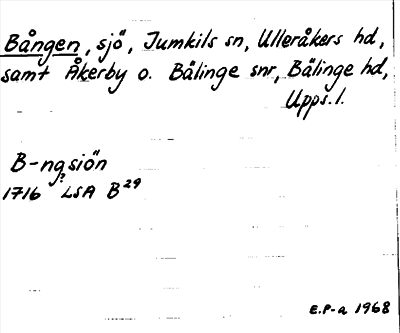 Bången, sjö, Jumkils sn, Ulleråkers hd,
samt Åkerby o. Bälinge snr, Bälinge hd,
Upps. l.
B-ngsiön
?
1716 LSA B 29
E.P-a 1968